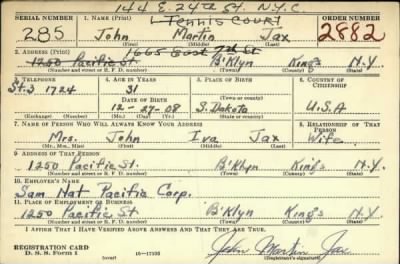 144 E. 24th St. N.Y.C.
SERIAL NUMBER 1. NAME (Print) 1 Tennis Court ORDER NUMBER
285 John Martin Jax 2882
(First) (Middle) (Last)
2. ADDRESS (Print) 1665 East 7th St
1250 Pacific St. B'Klyn King's N.Y.
(Number and street or R. F. D. number) (Town) (County) (State)
3. TELEPHONE 4. AGE IN YEARS 5. PLACE OF BIRTH 6. COUNTRY OF CITIZENSHIP
St.3 1724 31
DATE OF BIRTH (Town or county)
12-27-08 S. Dakota U.S.A
(Exchange) (Number) (Mo.) (Day) (Yr.) (State or country)
7. NAME OF PERSON WHO WILL ALWAYS KNOW YOUR ADDRESS 8. RELATIONSHIP OF THAT PERSON
Mrs. John Iva Jax Wife
(Mr., Mrs., Miss) (First) (Middle) (Last)
9. ADDRESS OF THAT PERSON
1250 Pacific St. B'Klyn King's N.Y.
(Number and street or R. F. D. number) (Town) (County) (State)
10. EMPLOYER'S NAME
Sam Nat Pacific Corp.
11. PLACE OF EMPLOYMENT OR BUSINESS
1250 Pacific St B'Klyn King's N.Y
(Number and street or R. F. D. number) (Town) (County) (State)
I AFFIRM THAT I HAVE VERIFIED ABOVE ANSWERS AND THAT THEY ARE TRUE.
REGISTRATION CARD John Martin Jax
D. S. S. Form 1 (over) 16-17105 (Registrant's signature)